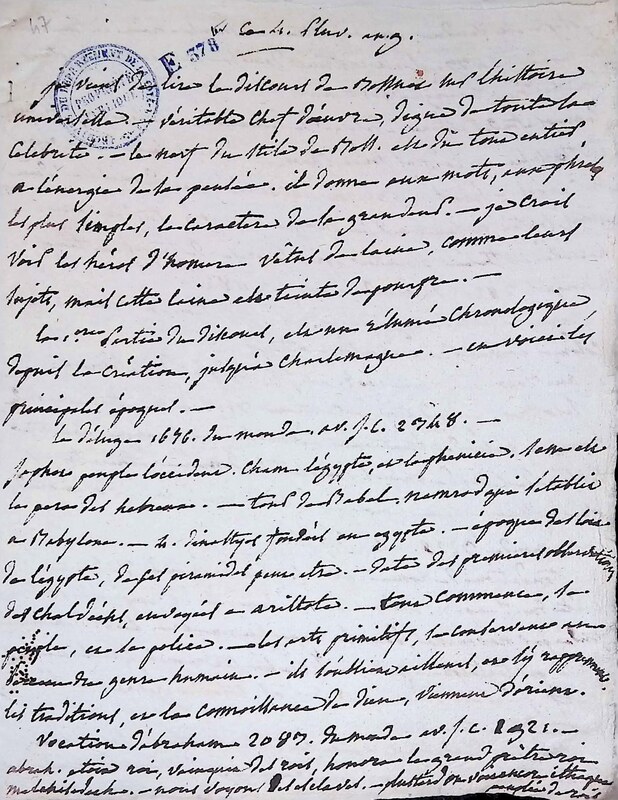 47
E 378
ce 4. Pluv. an 9.
je viens de lire le discours de Bossuet sur l'histoire
universelle. — véritable chef d'œuvre, digne de toute la
célébrité. — le nerf du stile de Boss. est du tout entier
a l'énergie de la pensée. il donne aux mots, aux phrases
les plus simples, le caractere de la grandeur. — je crois
voir les héros d'homere vêtus de laine, comme leurs
sujets, mais cette laine est teinte de pourpre. —
la 1ere partie du discours, est un résumé chronologique
depuis la création, jusqu'a Charlemagne. — en voici les
principales époques. —
Le déluge 1656. du monde. av. J.C. 2348. —
Japhet peuple l'occident. Cham l'égypte, et la phenicie. Sem est
le pere des hebreux. — tour de Babel. nemrod qui s'établit
a Babylone. — 4. dinasties fondées en egypte. — époque des loix
de l'égypte, de ses piramides peut etre. — date des premieres observations
des chaldéens, envoyées a aristote. — tout commence, le
peuple, et la police. — les arts primitifs, se conservent au
du genre humain. — ils s'oublient ailleurs, et s'y rapprennent.
les traditions, et la connoissance de dieu, viennent d'orient.
Vocation d'abraham 2083. du monde av. J.C. 1921. —
abrah. etoit roi, vainqueur des rois, honora le grand prêtre roi
melchisedech. — nous voyons des esclaves. —